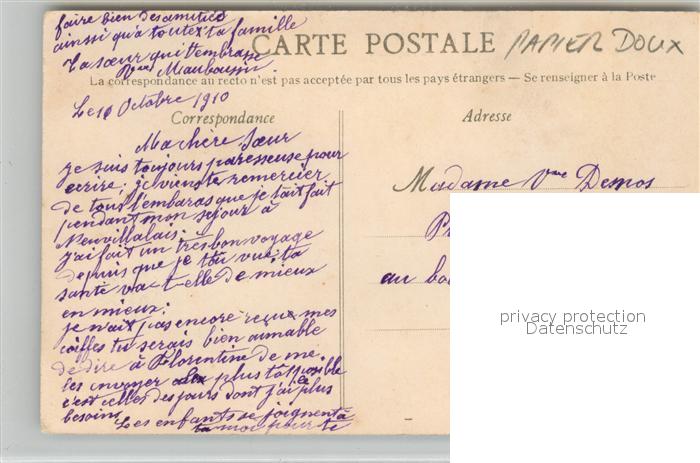 faire bien des amitiés
ainsi qu'à toutex ta famille
Ta sœur qui t'embrasse
Vve Maubaussin
CARTE POSTALE
PAPIER DOUX
La correspondance au recto n'est pas acceptée par tous les pays étrangers — Se renseigner à la Poste
Le 10 Octobre 1910
Correspondance
Adresse
Ma chère Sœur
je suis toujours paresseuse pour
écrire; je viens te remercier
de tous l'embaras que je t'ait fait
pendant mon séjour à
Neuvillalais.
j'ai fait un très bon voyage
depuis que je t'ou vue, ta
santé va-t-elle de mieux
en mieux;
je n'ait pas encore reçue mes
coiffes tu serais bien aimable
de dire à Florentine de me
les envoyer plus tôt possible
c'est celles des jours dont j'ai le plus
besoins
Les enfants se joignent à
moi pour te
Madame Vve Demos
au
privacy protection
Datenschutz